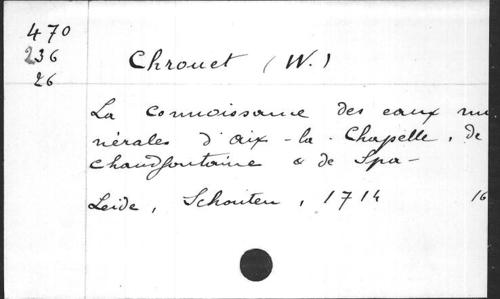 470
236
26
Chrouet (W.)
La connoissance des eaux mi
nérales d'aix-la-Chapelle, de
chaudfontaine & de Spa-
Leide, Schouten, 1714 16